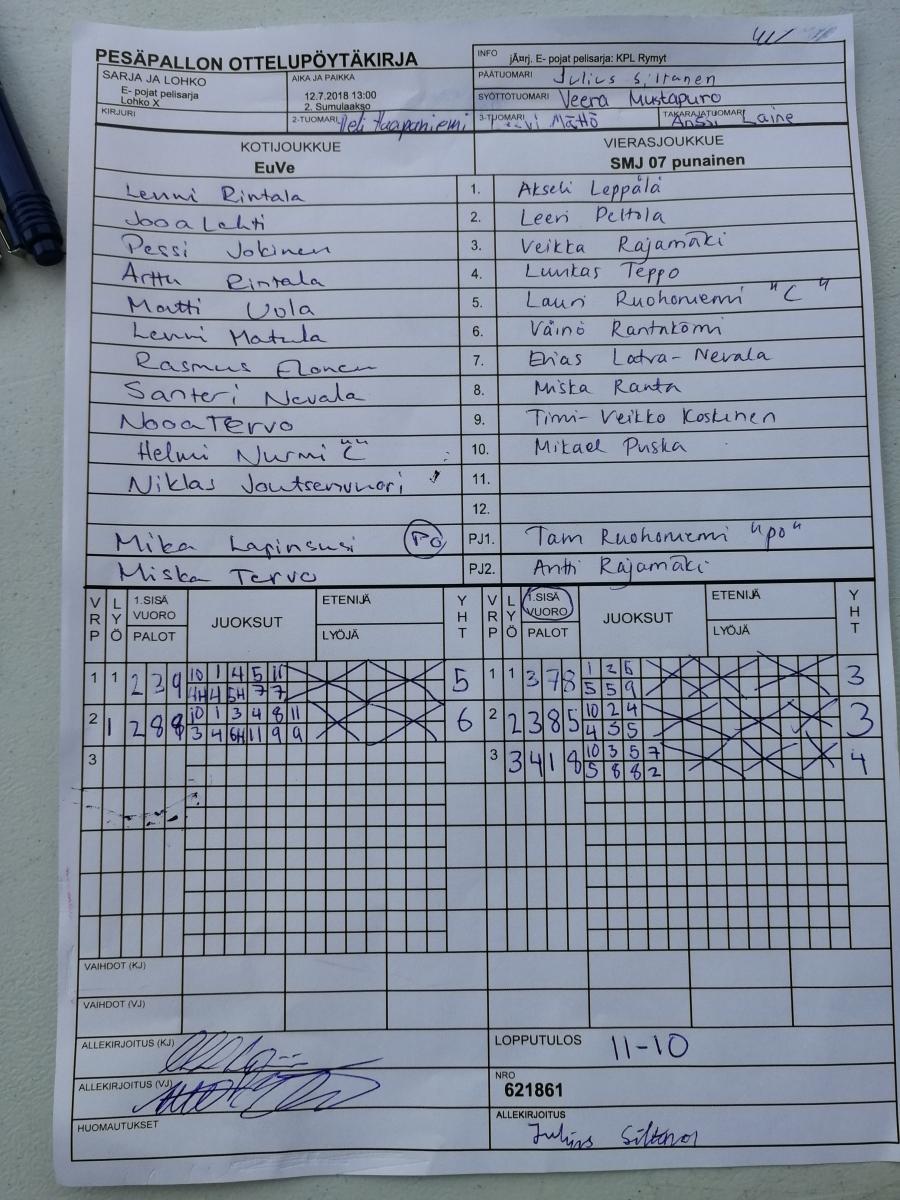 PESÄPALLON OTTELUPÖYTÄKIRJA
INFO jÃ¤rj. E- pojat pelisarja: KPL Rymyt
SARJA JA LOHKO
E- pojat pelisarja
Lohko X
AIKA JA PAIKKA
12.7.2018 13:00
2. Sumulaakso
PÄÄTUOMARI Julius Siltanen
SYÖTTÖTUOMARI Veera Mustapuro
KIRJURI
2-TUOMARI Haapaniemi
3-TUOMARI Mättö
TAKARAJATUOMARI Anssi Laine
KOTIJOUKKUE
EuVe
VIERASJOUKKUE
SMJ 07 punainen
Lenni Rintala 1. Akseli Leppälä
Jooa Lahti 2. Leevi Peltola
Pessi Jokinen 3. Veikka Rajamäki
Arttu Rintala 4. Luukas Teppo
Martti Uola 5. Lauri Ruohoniemi "C"
Lenni Matula 6. Väinö
Rasmus Elonen 7. Elias Latva-Nevala
Santeri Nevala 8. Miska Ranta
Nooa Tervo 9. Timi-Veikko Koskinen
Helmi Nurmi "C" 10. Mikael Puska
Niklas Joutsenvuori 11.
12.
Mika PO PJ1. Ruohoniemi "po"
Miska Tervo PJ2. Antti Rajamäki
VRP LYÖ 1.SISÄ VUORO PALOT JUOKSUT ETENIJÄ LYÖJÄ YHT VRP LYÖ 1.SISÄ VUORO PALOT JUOKSUT ETENIJÄ LYÖJÄ YHT
1 1 2 3 9 10 1 4 5 11 5 1 1 3 7 8 1 2 5 3
4H 4 5H 7 7 5 5 9
2 1 2 8 9 10 1 3 4 8 11 6 2 2 3 8 5 10 2 4 3
3 4 6H 11 9 9 4 3 5
3 3 3 4 1 8 10 3 5 7 4
5 8 8 2
VAIHDOT (KJ)
VAIHDOT (VJ)
ALLEKIRJOITUS (KJ)
LOPPUTULOS 11-10
ALLEKIRJOITUS (VJ)
NRO
621861
HUOMAUTUKSET
ALLEKIRJOITUS
Julius Siltanen